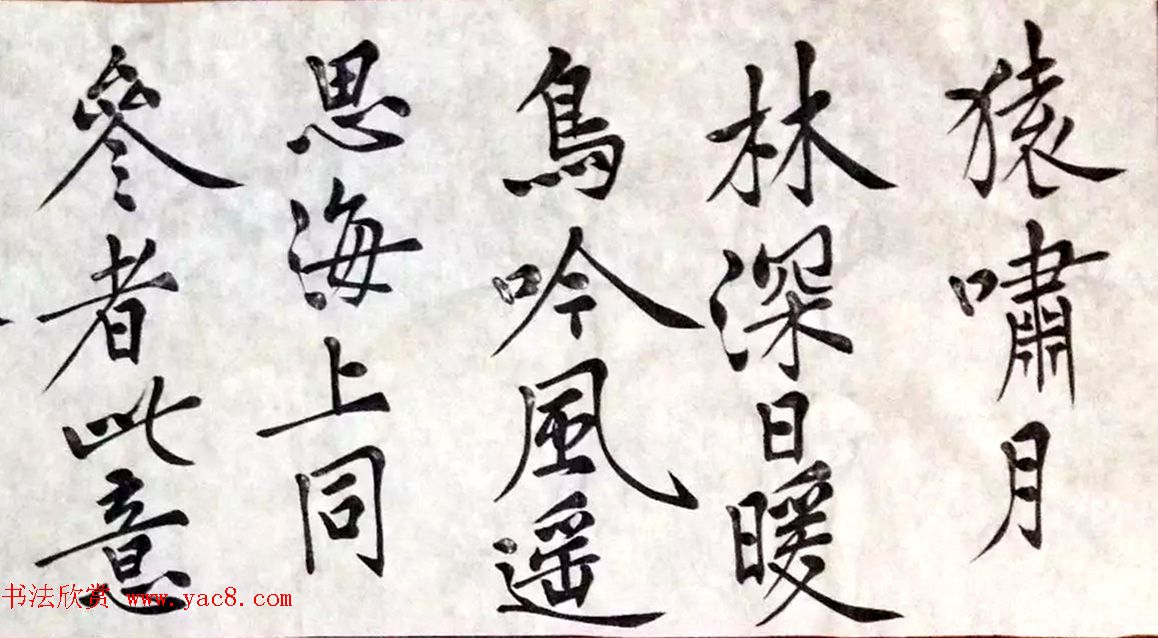 猿嘯月
林深日暖
鳥吟風遥
思海上同
參者此意
书法欣赏 www.yac8.com